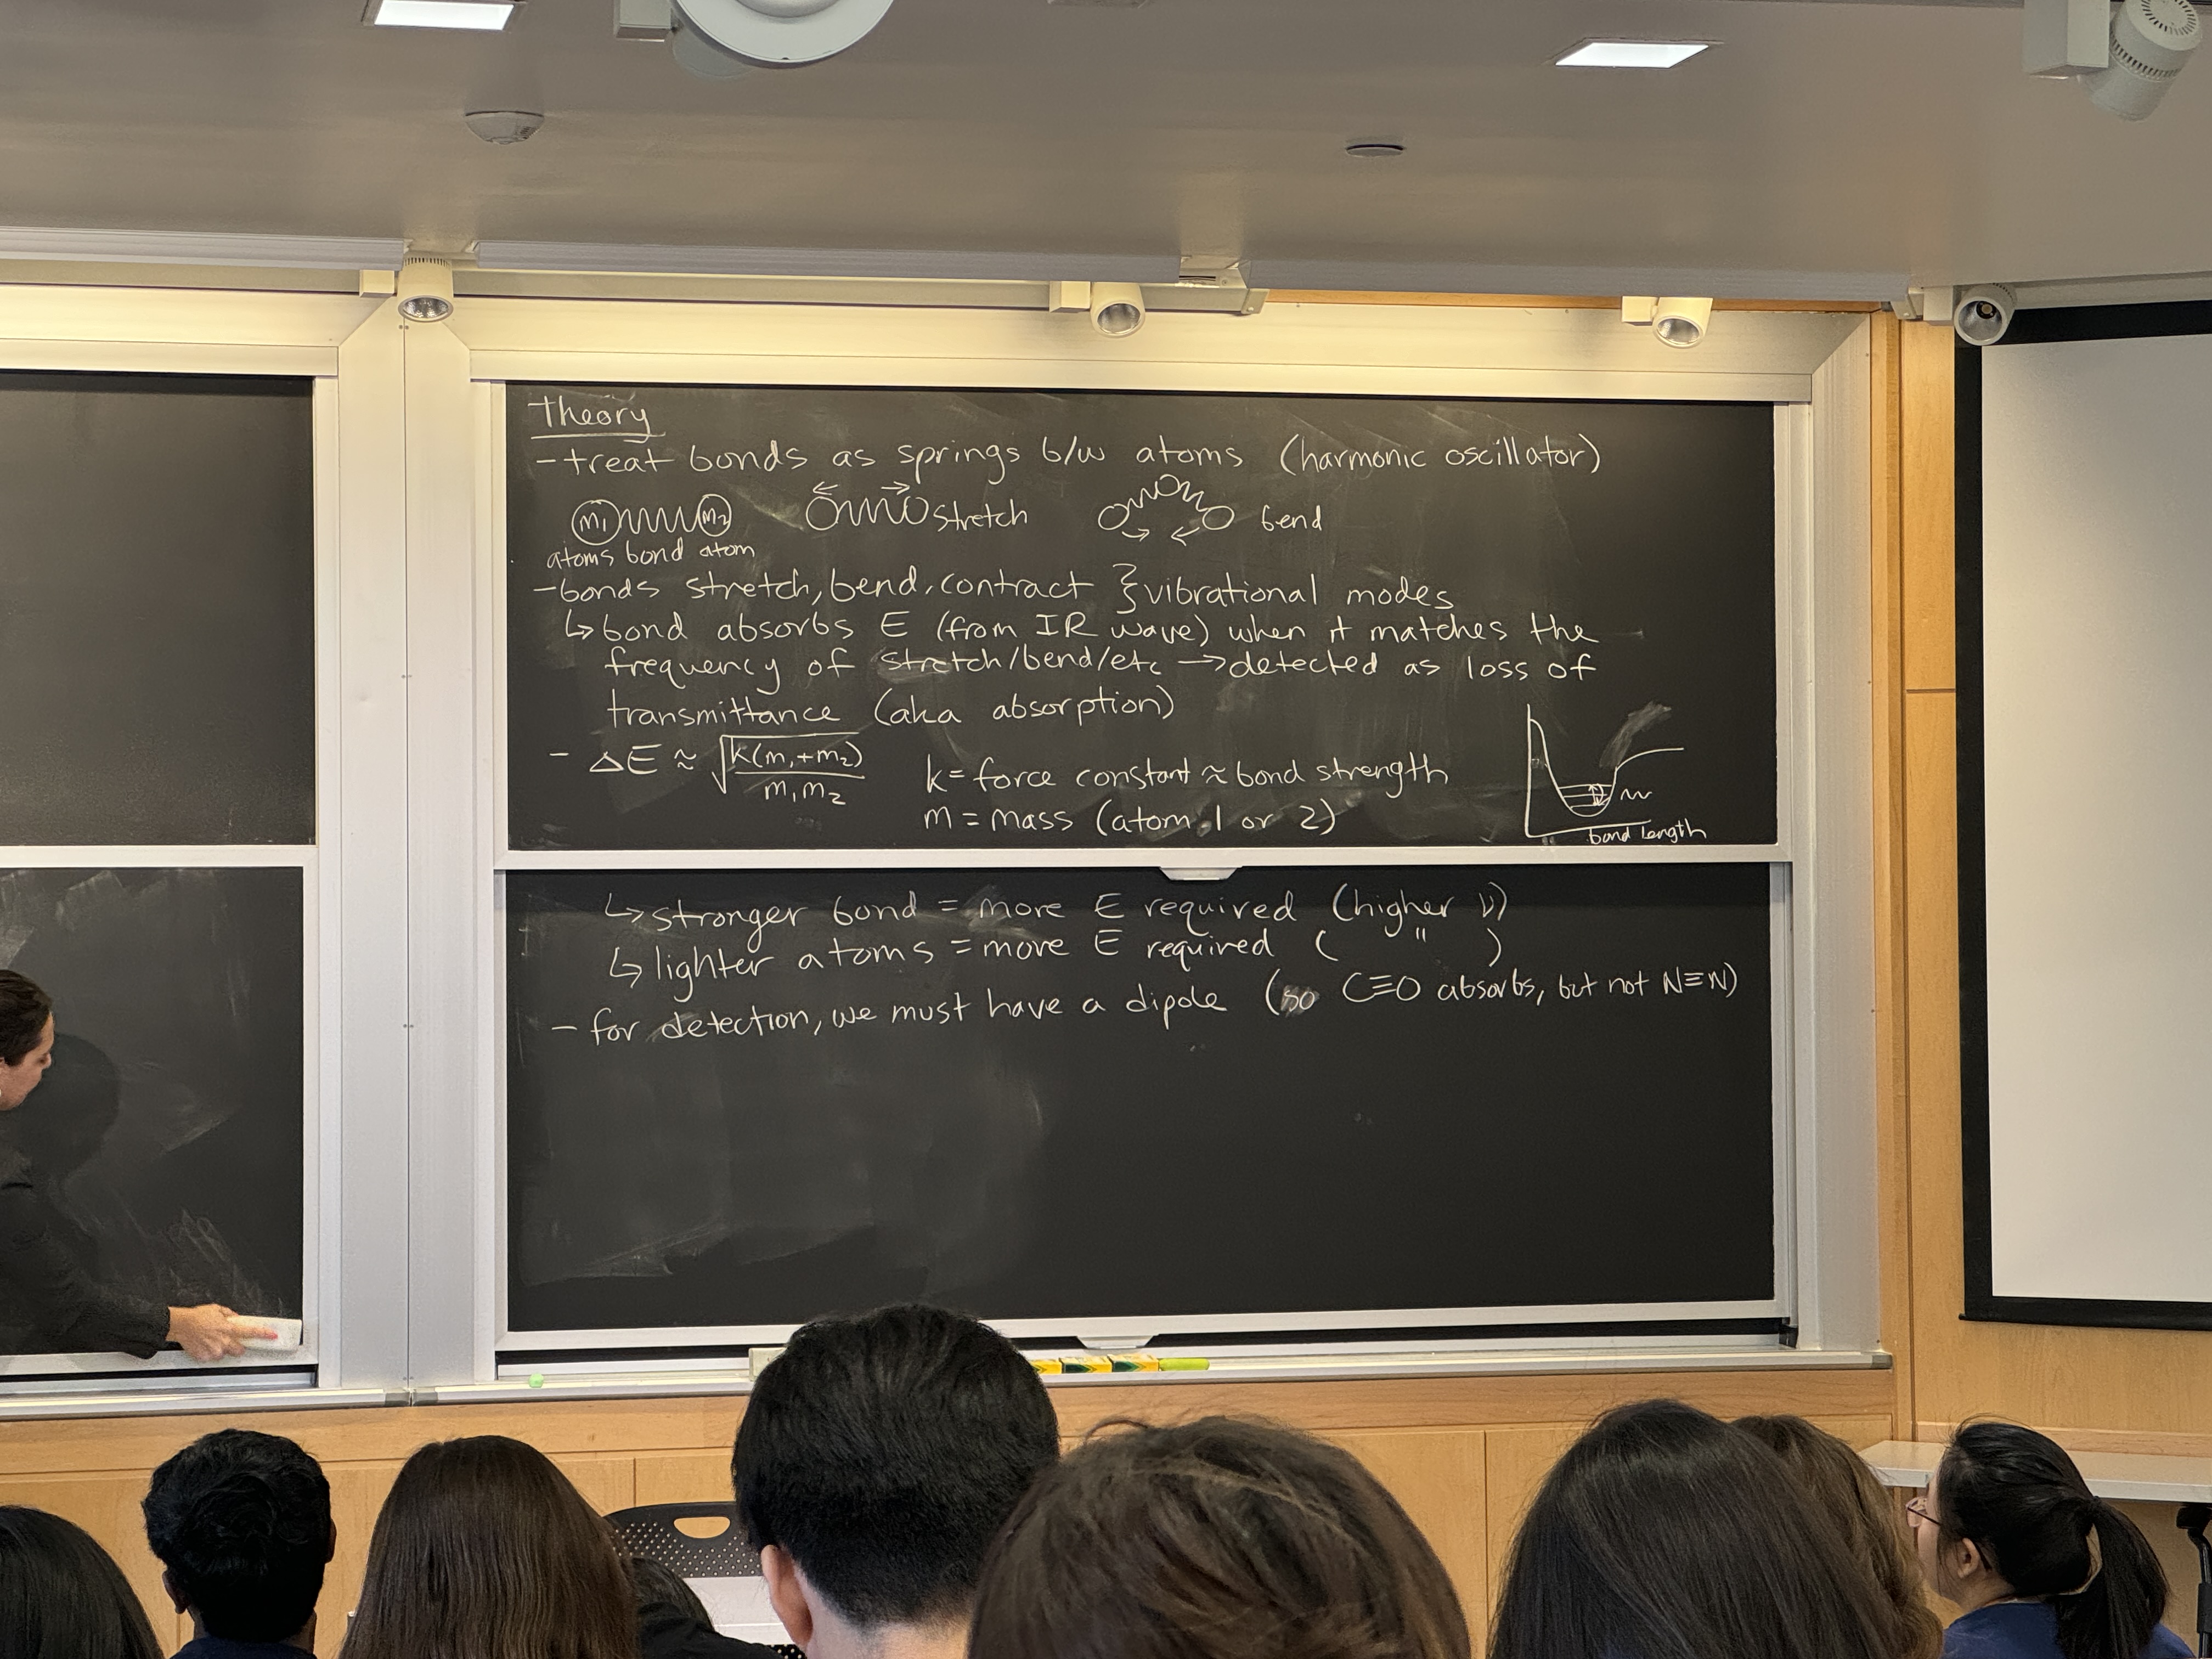 Theory
- treat bonds as springs b/w atoms (harmonic oscillator)
m₁ m₂ stretch bend
atoms bond atom
- bonds stretch, bend, contract } vibrational modes
↳ bond absorbs E (from IR wave) when it matches the
frequency of stretch/bend/etc → detected as loss of
transmittance (aka absorption)
- ΔE ≈ √(k(m₁+m₂)/m₁m₂)
k = force constant ≈ bond strength
m = mass (atom 1 or 2)
bond length
↳ stronger bond = more E required (higher ν)
↳ lighter atoms = more E required ( " )
- for detection, we must have a dipole (so C≡O absorbs, but not N≡N)